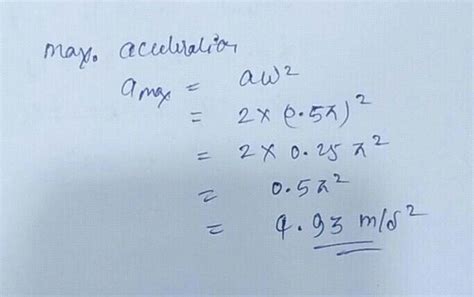 max. acceleration
a max = aω²
= 2 × (0.5π)²
= 2 × 0.25 π²
= 0.5π²
= 4.93 m/s²